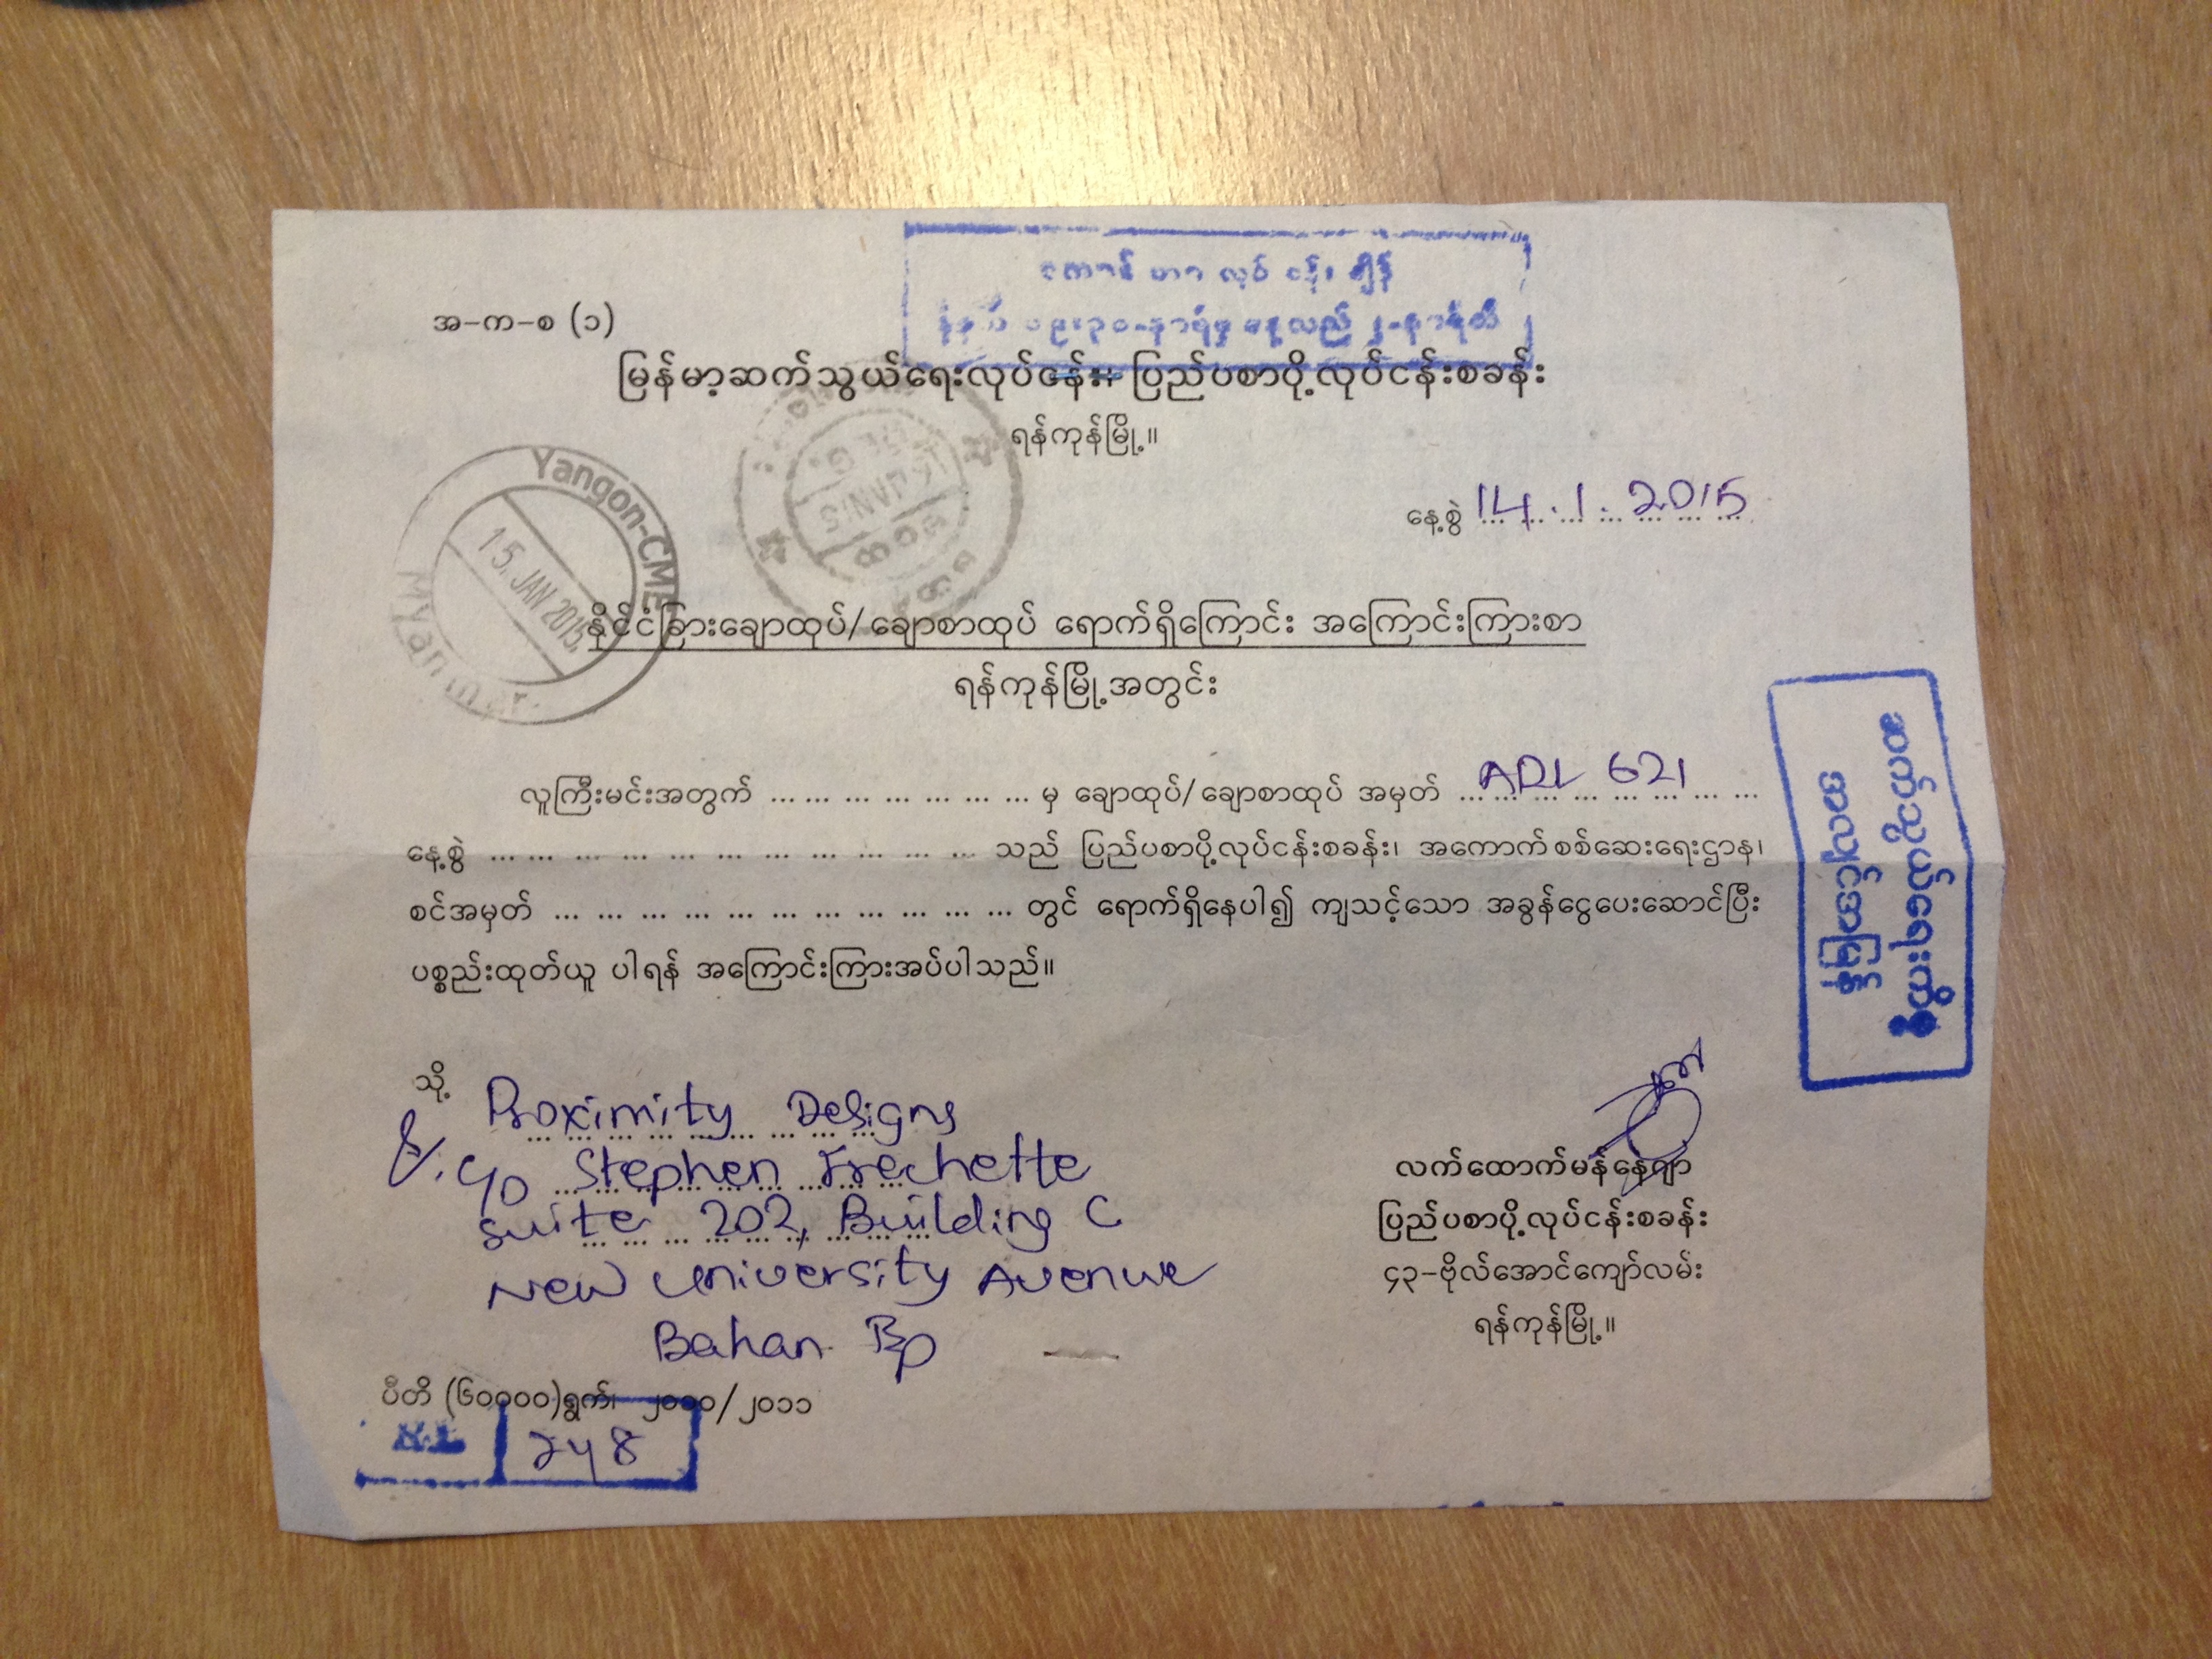 အကောက် ... လုပ်ငန်းချိန်
နံနက် ၀၉း၃၀-နာရီမှ နေ့လည် ၂-နာရီထိ
အ-က-စ (၁)
မြန်မာ့ဆက်သွယ်ရေးလုပ်ငန်း၊ ပြည်ပစာပို့လုပ်ငန်းစခန်း
ရန်ကုန်မြို့။
နေ့စွဲ 14.1.2015
Yangon-CME
15. JAN 2015
Myanmar
16 JAN 15
နိုင်ငံခြားချောထုပ်/ချောစာထုပ် ရောက်ရှိကြောင်း အကြောင်းကြားစာ
ရန်ကုန်မြို့အတွင်း
လူကြီးမင်းအတွက် ... ... ... ... ... ... ... မှ ချောထုပ်/ချောစာထုပ် အမှတ် ADL 621
နေ့စွဲ ... ... ... ... ... ... ... ... ... ... ... သည် ပြည်ပစာပို့လုပ်ငန်းစခန်း၊ အကောက်စစ်ဆေးရေးဌာန၊
စင်အမှတ် ... ... ... ... ... ... ... ... ... ... ... တွင် ရောက်ရှိနေပါ၍ ကျသင့်သော အခွန်ငွေပေးဆောင်ပြီး
ပစ္စည်းထုတ်ယူ ပါရန် အကြောင်းကြားအပ်ပါသည်။
သို့
Proximity Designs
c/o Stephen Frechette
Suite 202, Building C
New University Avenue
Bahan Tsp
လက်ထောက်မန်နေဂျာ
ပြည်ပစာပို့လုပ်ငန်းစခန်း
၄၃-ဗိုလ်အောင်ကျော်လမ်း
ရန်ကုန်မြို့။
ပီတိ (၆၀၀၀၀)ရွက်၊ ၂၀၁၀/၂၀၁၁
248